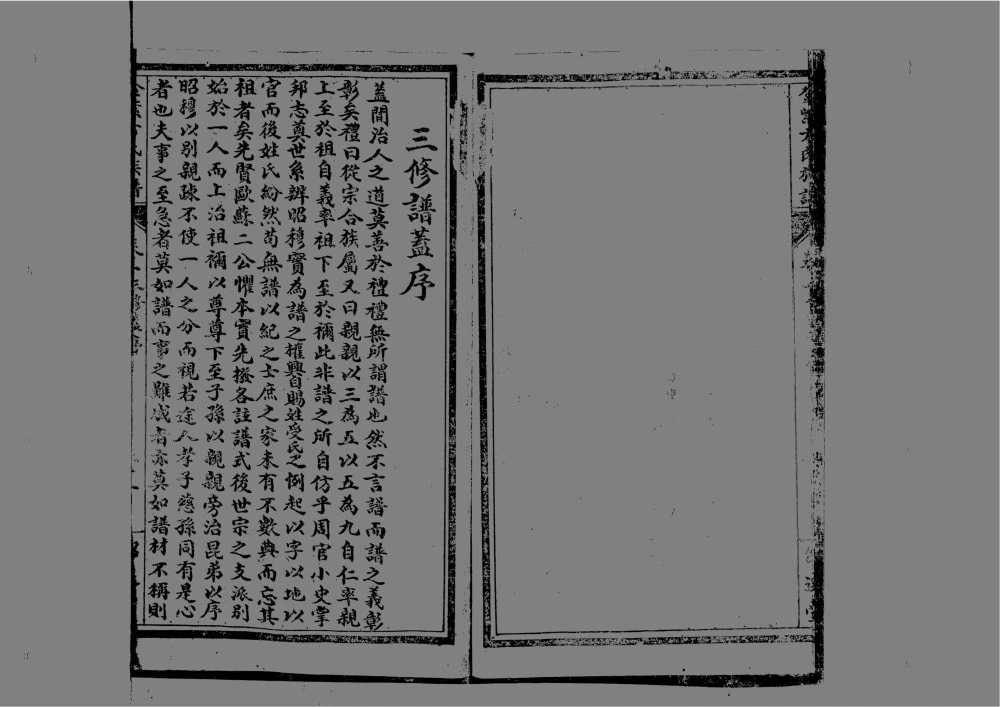 三修譜蓋序
蓋聞治人之道莫善於禮禮無所謂譜也然不言譜而譜之義彰
彰矣禮曰從宗合族屬又曰親親以三為五以五為九自仁率親
上至於祖自義率祖下至於禰此非譜之所自仿乎周官小史掌
邦志奠世系辨昭穆實為譜之權輿自賜姓受氏之例起以字以地以
官而後姓氏紛然苟無譜以紀之士庶之家未有不數典而忘其
祖者矣先賢歐蘇二公懼本實先撥各註譜式後世宗之支派別
始於一人而上治祖禰以尊尊下至子孫以親親旁治昆弟以序
昭穆以別親疎不使一人之分而視若途人孝子慈孫同有是心
者也夫事之至急者莫如譜而事之難成者亦莫如譜材不稱則